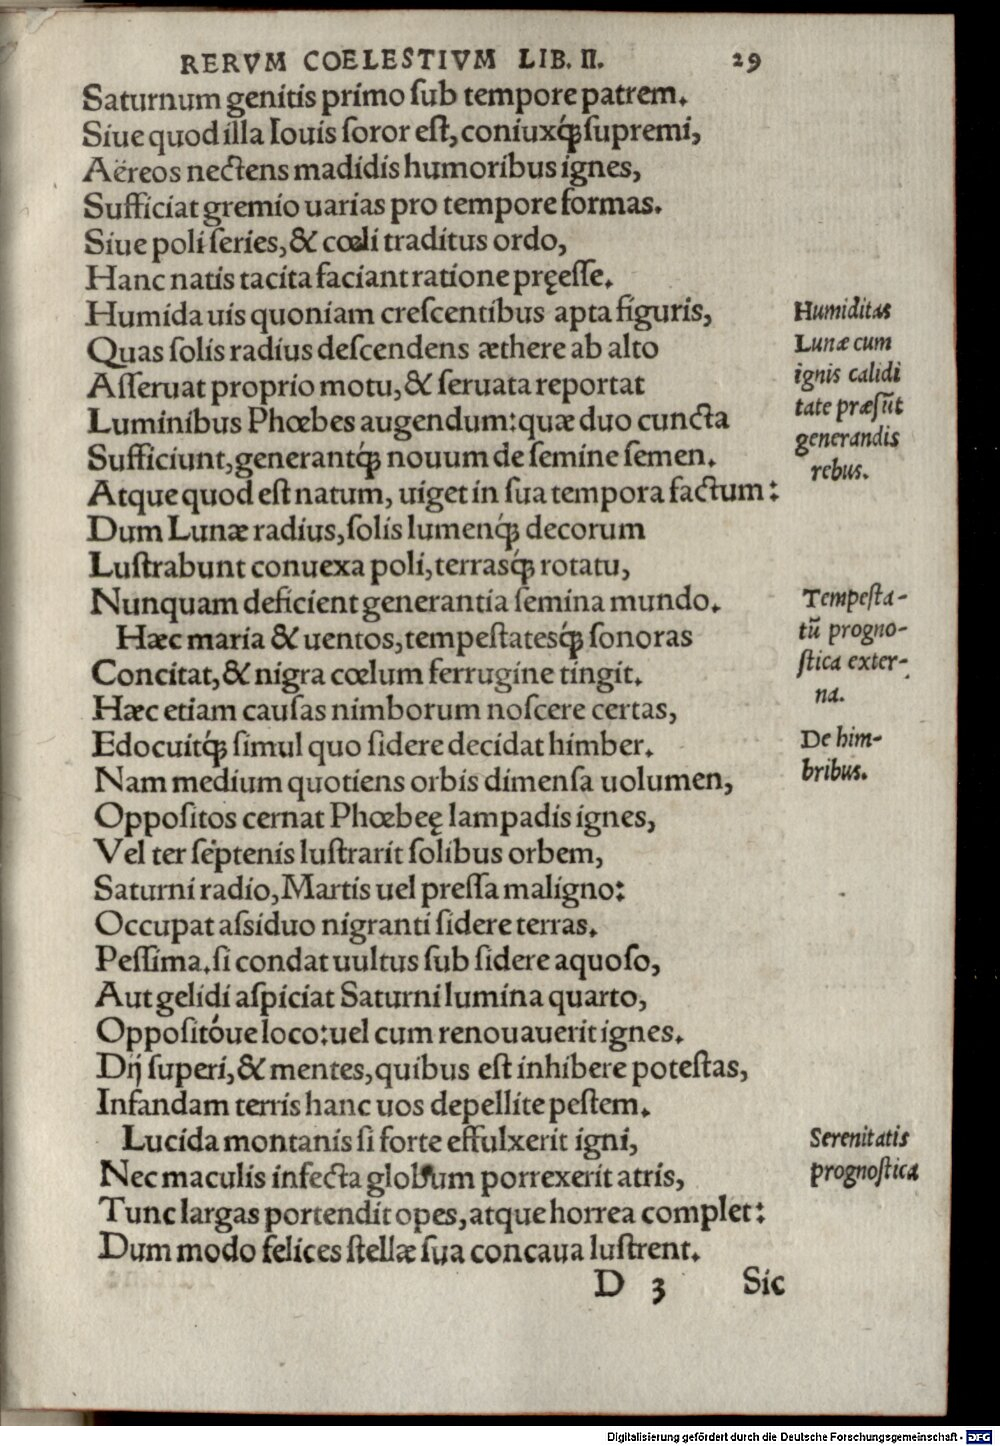 RERVM COELESTIVM LIB. II. 29
Saturnum genitis primo ſub tempore patrem.
Siue quod illa Iouis ſoror eſt, coniuxq́; ſupremi,
Aëreos nectens madidis humoribus ignes,
Sufficiat gremio uarias pro tempore formas.
Siue poli ſeries, & cœli traditus ordo,
Hanc natis tacita faciant ratione pręeſſe.
Humida uis quoniam creſcentibus apta figuris,
Quas ſolis radius deſcendens æthere ab alto
Aſſeruat proprio motu, & ſeruata reportat
Luminibus Phœbes augendum: quæ duo cuncta
Sufficiunt, generantq́; nouum de ſemine ſemen.
Atque quod eſt natum, uiget in ſua tempora factum:
Dum Lunæ radius, ſolis lumenq́; decorum
Luſtrabunt conuexa poli, terrasq́; rotatu,
Nunquam deficient generantia ſemina mundo.
Hæc maria & uentos, tempeſtatesq́; ſonoras
Concitat, & nigra cœlum ferrugine tingit.
Hæc etiam cauſas nimborum noſcere certas,
Edocuitq́; ſimul quo ſidere decidat himber.
Nam medium quotiens orbis dimenſa uolumen,
Oppoſitos cernat Phœbeę lampadis ignes,
Vel ter ſéptenis luſtrarit ſolibus orbem,
Saturni radio, Martis uel preſſa maligno:
Occupat aſsiduo nigranti ſidere terras.
Peſſima. ſi condat uultus ſub ſidere aquoſo,
Aut gelidi aſpiciat Saturni lumina quarto,
Oppoſitóue loco: uel cum renouauerit ignes.
Dij ſuperi, & mentes, quibus eſt inhibere poteſtas,
Infandam terris hanc uos depellite peſtem.
Lucida montanis ſi forte effulxerit igni,
Nec maculis infecta globum porrexerit atris,
Tunc largas portendit opes, atque horrea complet:
Dum modo felices ſtellæ ſua concaua luſtrent.
D 3 Sic
Humiditas
Lunæ cum
ignis calidi
tate præſūt
generandis
rebus.
Tempeſta-
tū progno-
ſtica exter-
na.
De him-
bribus.
Serenitatis
prognoſtica
Digitalisierung gefördert durch die Deutsche Forschungsgemeinschaft - DFG